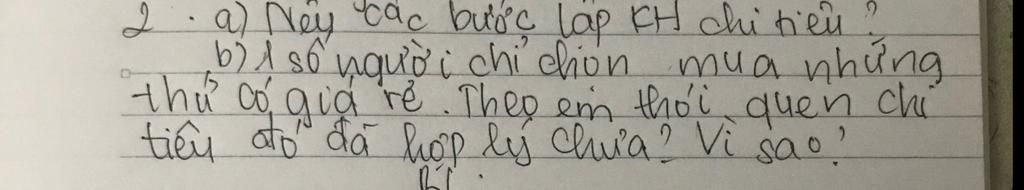 2. a) Nêu các bước lập KH chi tiêu?
b) 1 số người chỉ chọn mua những
thứ có giá rẻ. Theo em thói quen chi
tiêu đó đã hợp lý chưa? Vì sao?